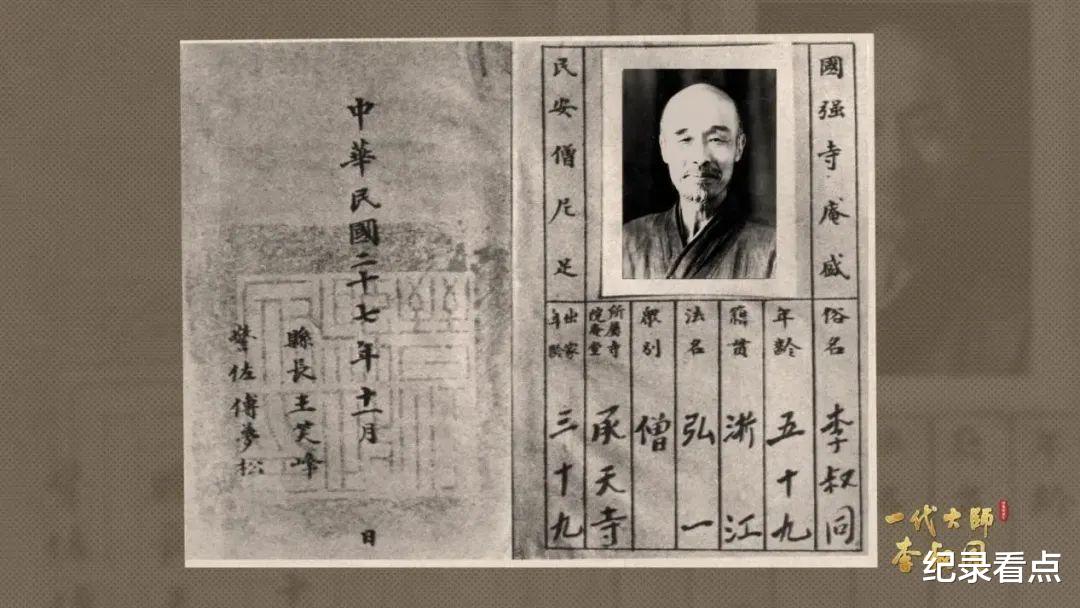 國强寺庵盛
民安僧尼足
俗名 李叔同
年齡 五十九
籍貫 浙江
法名 弘一
眾別 僧
所屬寺院菴堂 承天寺
出家年齡 三十九
中華民國二十七年十一月 日
縣長王笑峰
警佐傅夢松
一代大師
李叔同
纪录看点